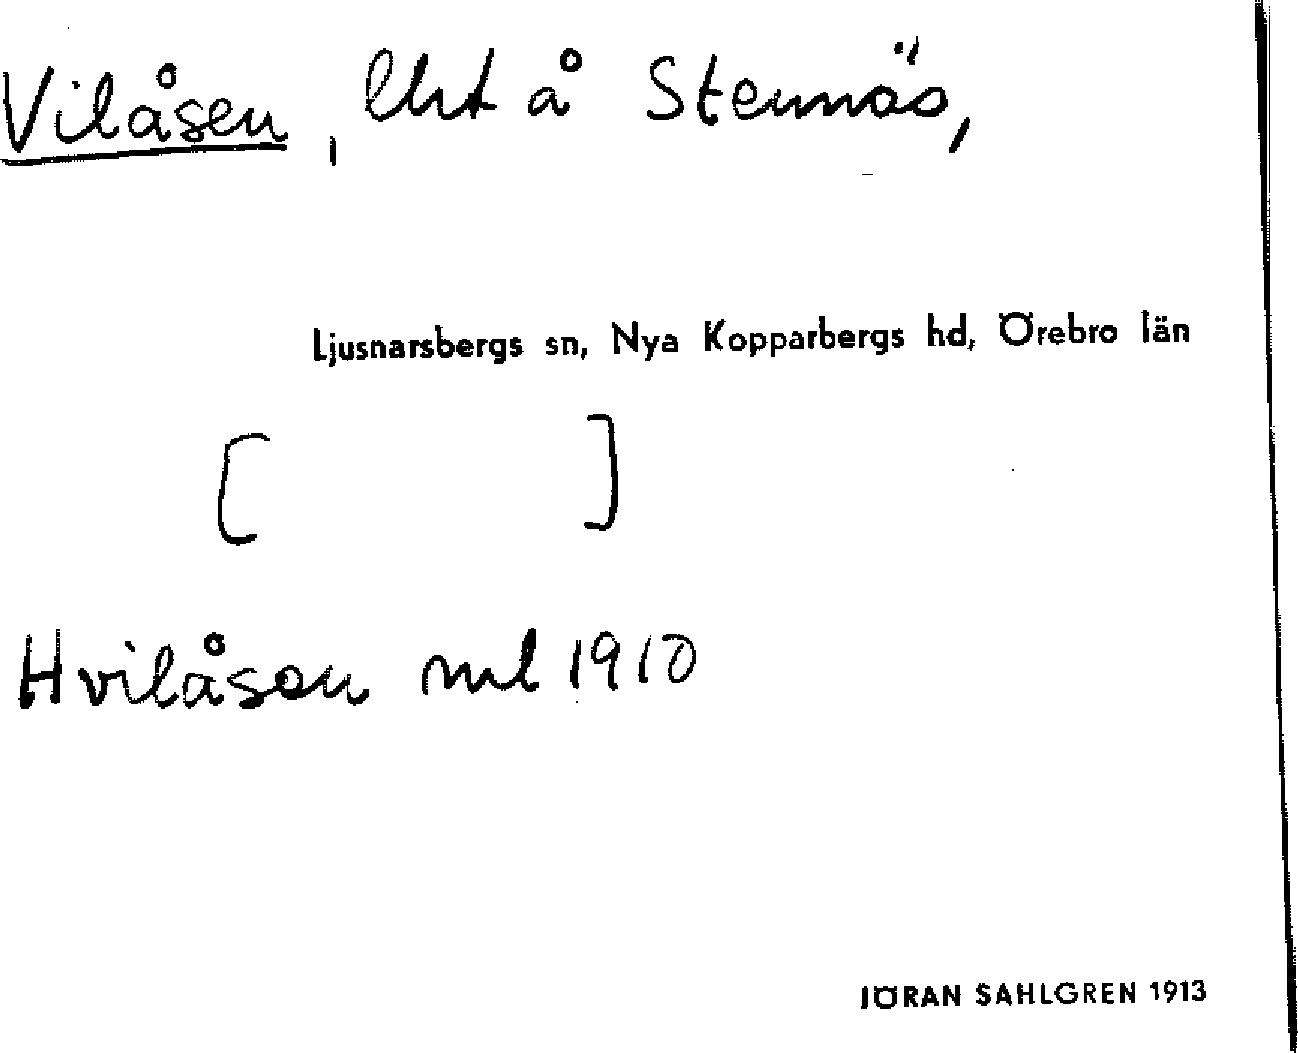 Vilåsen, lht å Stennäs,
Ljusnarsbergs sn, Nya Kopparbergs hd, Örebro län
[ ]
Hvilåsen ml 1910
JÖRAN SAHLGREN 1913